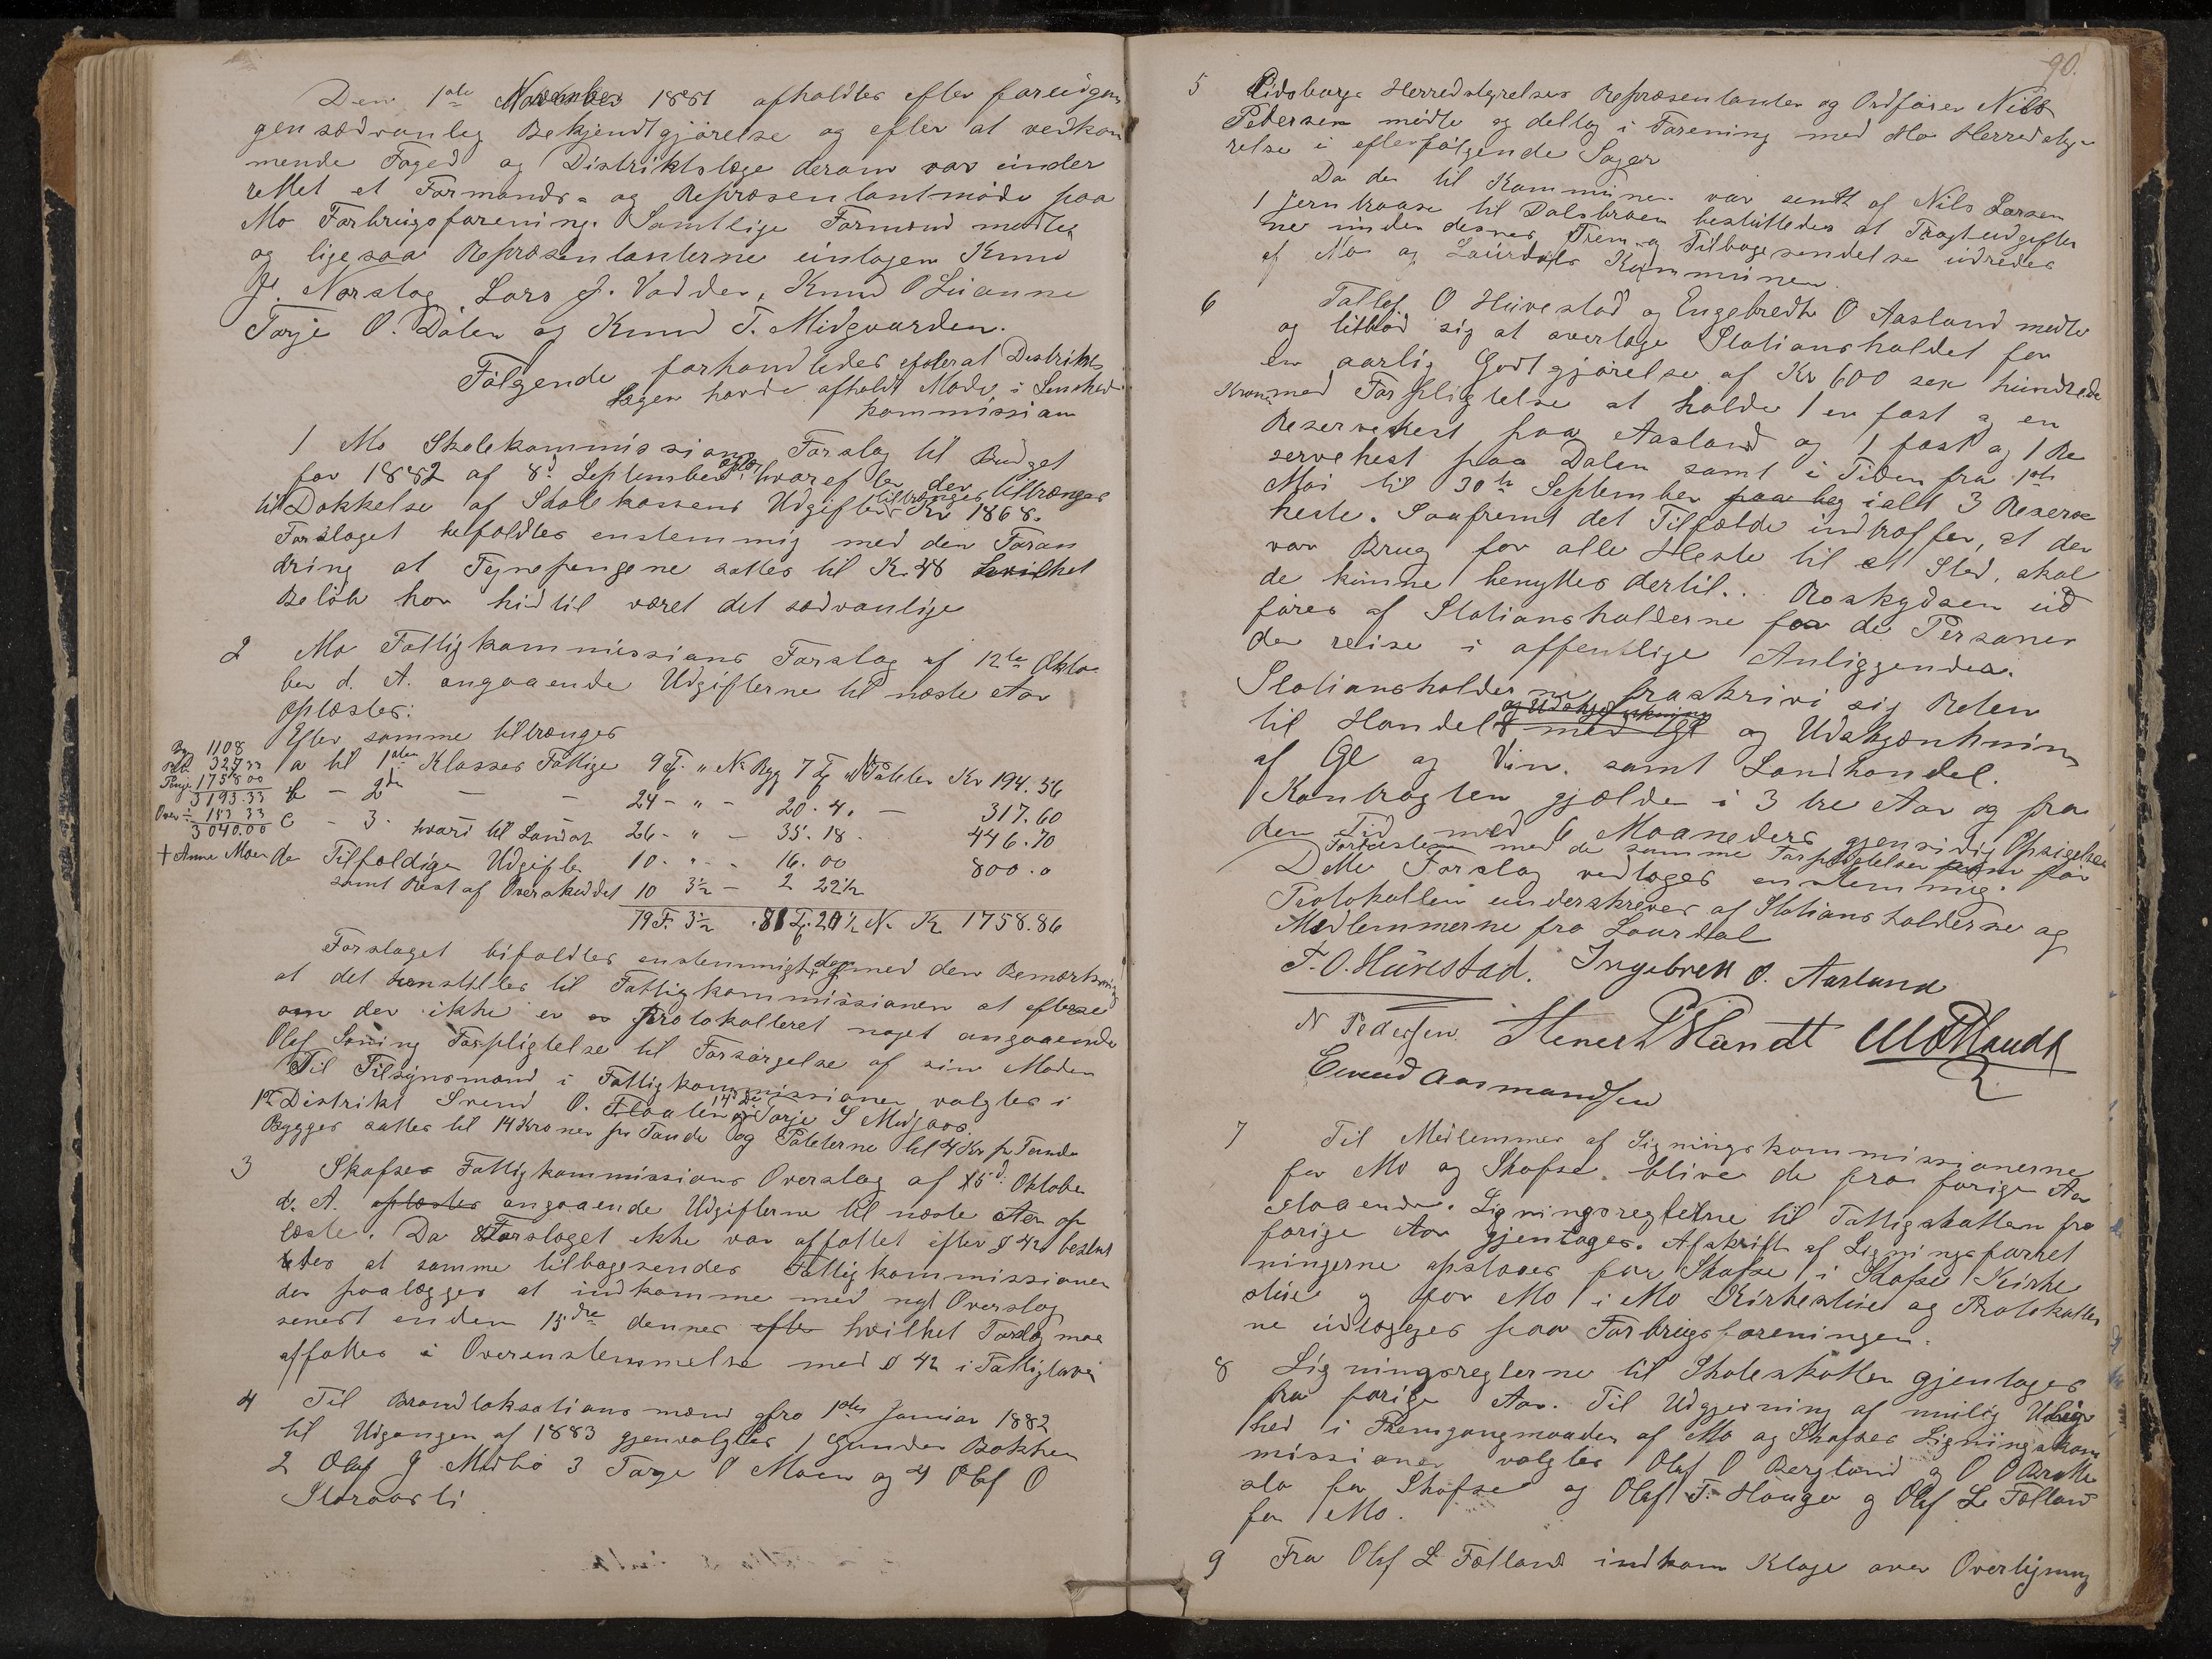 Den 1ste November 1881 afholdtes efter foreudgaa
gen sædvanlig Bekjendtgjörelse og efter at vedkom
mende Foged og Distriktslæge derom var under
rettet et Formands- og Repræsentantmöde paa
Mo Forbrugsforening. Samtlige Formænd mödte
og ligesaa Repræsentanterne untagen Knud
J. Norslog, Lars J. Vadder, Knud O Lianne
Torje O. Dalen og Knud T. Midgaarden.
Fölgende forhandledes efterat Distrikts
lægen havde afholdt Möde i Sundheds
kommission
1 Mo Skolekommissions Forslag til Budget
for 1882 af 8d September oplæs. hvorefter der
til Dækkelse af Skolekassens Udgifter tiltrænges Kr 1868.
Forslaget bifaldtes enstemmig med den Foran
dring at Tegnepengene sattes til Kr. 48 hvilket
Belöb har hidtil været det sædvanlige
2 Mo Fattigkommissions Forslag af 12te Okto
ber d. A. angaaende Udgifterne til næste Aar
oplæstes:
Efter samme tiltrænges
By 1108
327.33
Penge 1758 00
3193.33
Over ÷ 153 33
3040.00
† Anne Moen
a til 1ste Klasses Fattige 9 T. " N Byg 7 T. " N Poteter Kr 194.56
b - 2den - - 24 - " - 20. 4. - 317.60
c - 3. hvori til Landat 26 - " - 35. 18. 446.70
d Tilfældige Udgifter 10. " - 16. 00 800.0
samt Rest af Overskuddet 10 3½ - 2 22½
79 T. 3½ . 81 T. 20½ N. Kr 1758.86
Forslaget bifaldtes enstemmigt, dog med den Bemærkning
at det henstilles til Fattigkommissionen at efterse
om der ikke er Protokolleret noget angaaende
Olaf Forpligtelse til Forsörgelse af sin Moder
Til Tilsynsmænd i Fattigkommissionen valgtes i
1ste Distrikt Svend O. Flaaten og 14de Do Torje S Midjaas
Bygget sattes til 14 Kroner pr Tande og Poteterne til 4 Kr pr Tande
3 Skafsaa Fattigkommissions Overslag af 15d: Oktober
d. A. oplæstes angaaende Udgifterne til næste Aar op
læste. Da Forslaget ikke var affattet efter § 42 beslut
tedes at samme tilbagesendes Fattigkommissionen
der paalægges at indkomme med nyt Overslag
senest enden 15de dennes efter hvilket Forslag maa
affattes i Overenstemmelse med § 42 i Fattigloven
4 Til Brandtaksationsmænd fra 1ste Januar 1882
til Udgangen af 1883 gjenvalgtes 1 Gunder Bakken
2 Olaf G Midbö 3 Torje O Moen og 4 Olaf O
Storaasli
90.
5 Eidsborgs Herredstyrelses Repræsentanter og Ordförer Nils
Pedersen mödte og deltog i Forening med Mo Herredsty-
relse i efterfölgende Sager
Da der til Kommunen var sendt af Nils Larsen
1 Jernkrase til Dalsbroen besluttedes at Fragtudgifter
ne under dennes Frem- og Tilbagesendelse udredes
af Mo og Laurdals Kommuner.
6 Tallef O Huvestad og Engebredt O Aasland mödte
og tilböd sig at overtage Stationsholdet for
en aarlig Godtgjörelse af Kr 600 sex hundrede
Kroner med Forpligtelse at holde 1 en fast og en
Reservehest paa Aasland og 1 fast og 1 Re
servehest paa Dalen samt i Tiden fra 1ste
Mai til 30te September paa beg ialt 3 Reserve
heste. Saafremt det Tilfælde indtræffer, at der
var Brug for alle Heste til et Sted, skal
de kunne benyttes dertil. Roskydsen ud
föres af Stationsholderne for de Personer
der reise i offentlige Anliggender.
Stationsholderne fraskrive sig Reten
til Handel med Öl og Udskjænkning og Udskjænkning
af Öl og Vin. samt Landhandel.
Kontragten gjælder i 3 tre Aar og fra
den Tid med 6 Maaneders gjensidig Opsigelse
Forresten med de samme Forpligtelser som för
Dette Forslag vedtoges enstemmig.
Protokollen underskreves af Stationsholderne og
Medlemmerne fra Laurdal
T. O. Huvestad. Ingebrett O. Aasland
N Pedersen.
Eivind Aasmandsen
7 Til Medlemmer af Ligningskommissionerne
for Mo og Skafse. blive de fra forige Aar
staaende. Ligningsreglerne til Fattigskatten fra
forige Aar gjentages. Afskrift af Ligningsforret
ningerne opslaaes for Skafse i Skafse Kirke
stue og for Mo i Mo Kirkestue og Protokolle
ne udlægges paa Forbrugsforeningen.
8 Ligningsreglerne til Skoleskatten gjentages
fra forige Aar. Til Udgjevning af mulig Ulig
hed i Fremgangsmaaden af Mo og Skafses Ligningskom
missioner valgtes Olaf O Bergland og O O Bratte
sta for Skafse og Olaf T. Hauge og Olaf L. Fælland
for Mo.
9 Fra Olaf L Fælland indkom Klage over Overligning